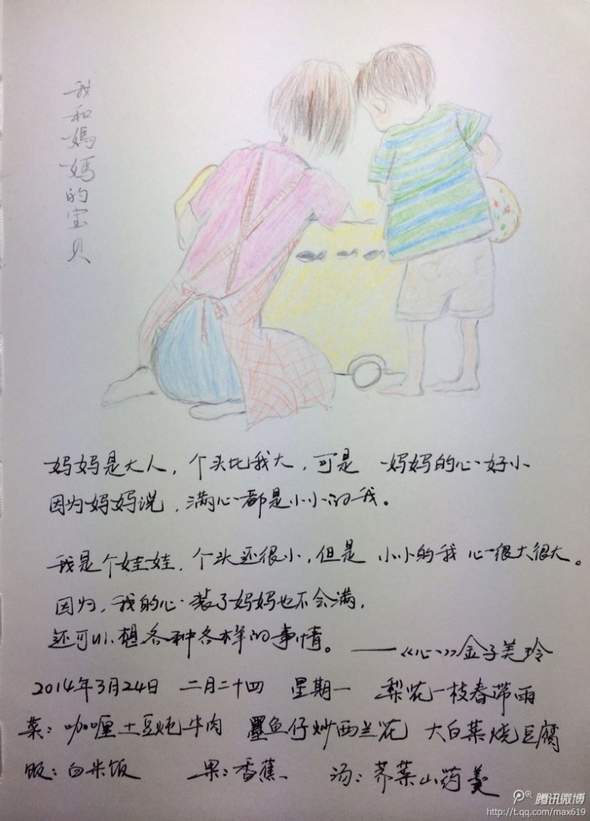 我和媽媽的宝贝
妈妈是大人，个头比我大，可是 妈妈的心好小
因为妈妈说，满心都是小小的我。
我是个娃娃，个头还很小，但是 小小的我 心很大很大。
因为，我的心装了妈妈也不会满，
还可以想各种各样的事情。——《心》金子美玲
2014年3月24日 二月二十四 星期一 梨花一枝春带雨
菜：咖喱土豆炖牛肉 墨鱼仔炒西兰花 大白菜烧豆腐
饭：白米饭 果：香蕉 汤：荠菜山药羹
腾讯微博
http://t.qq.com/max619